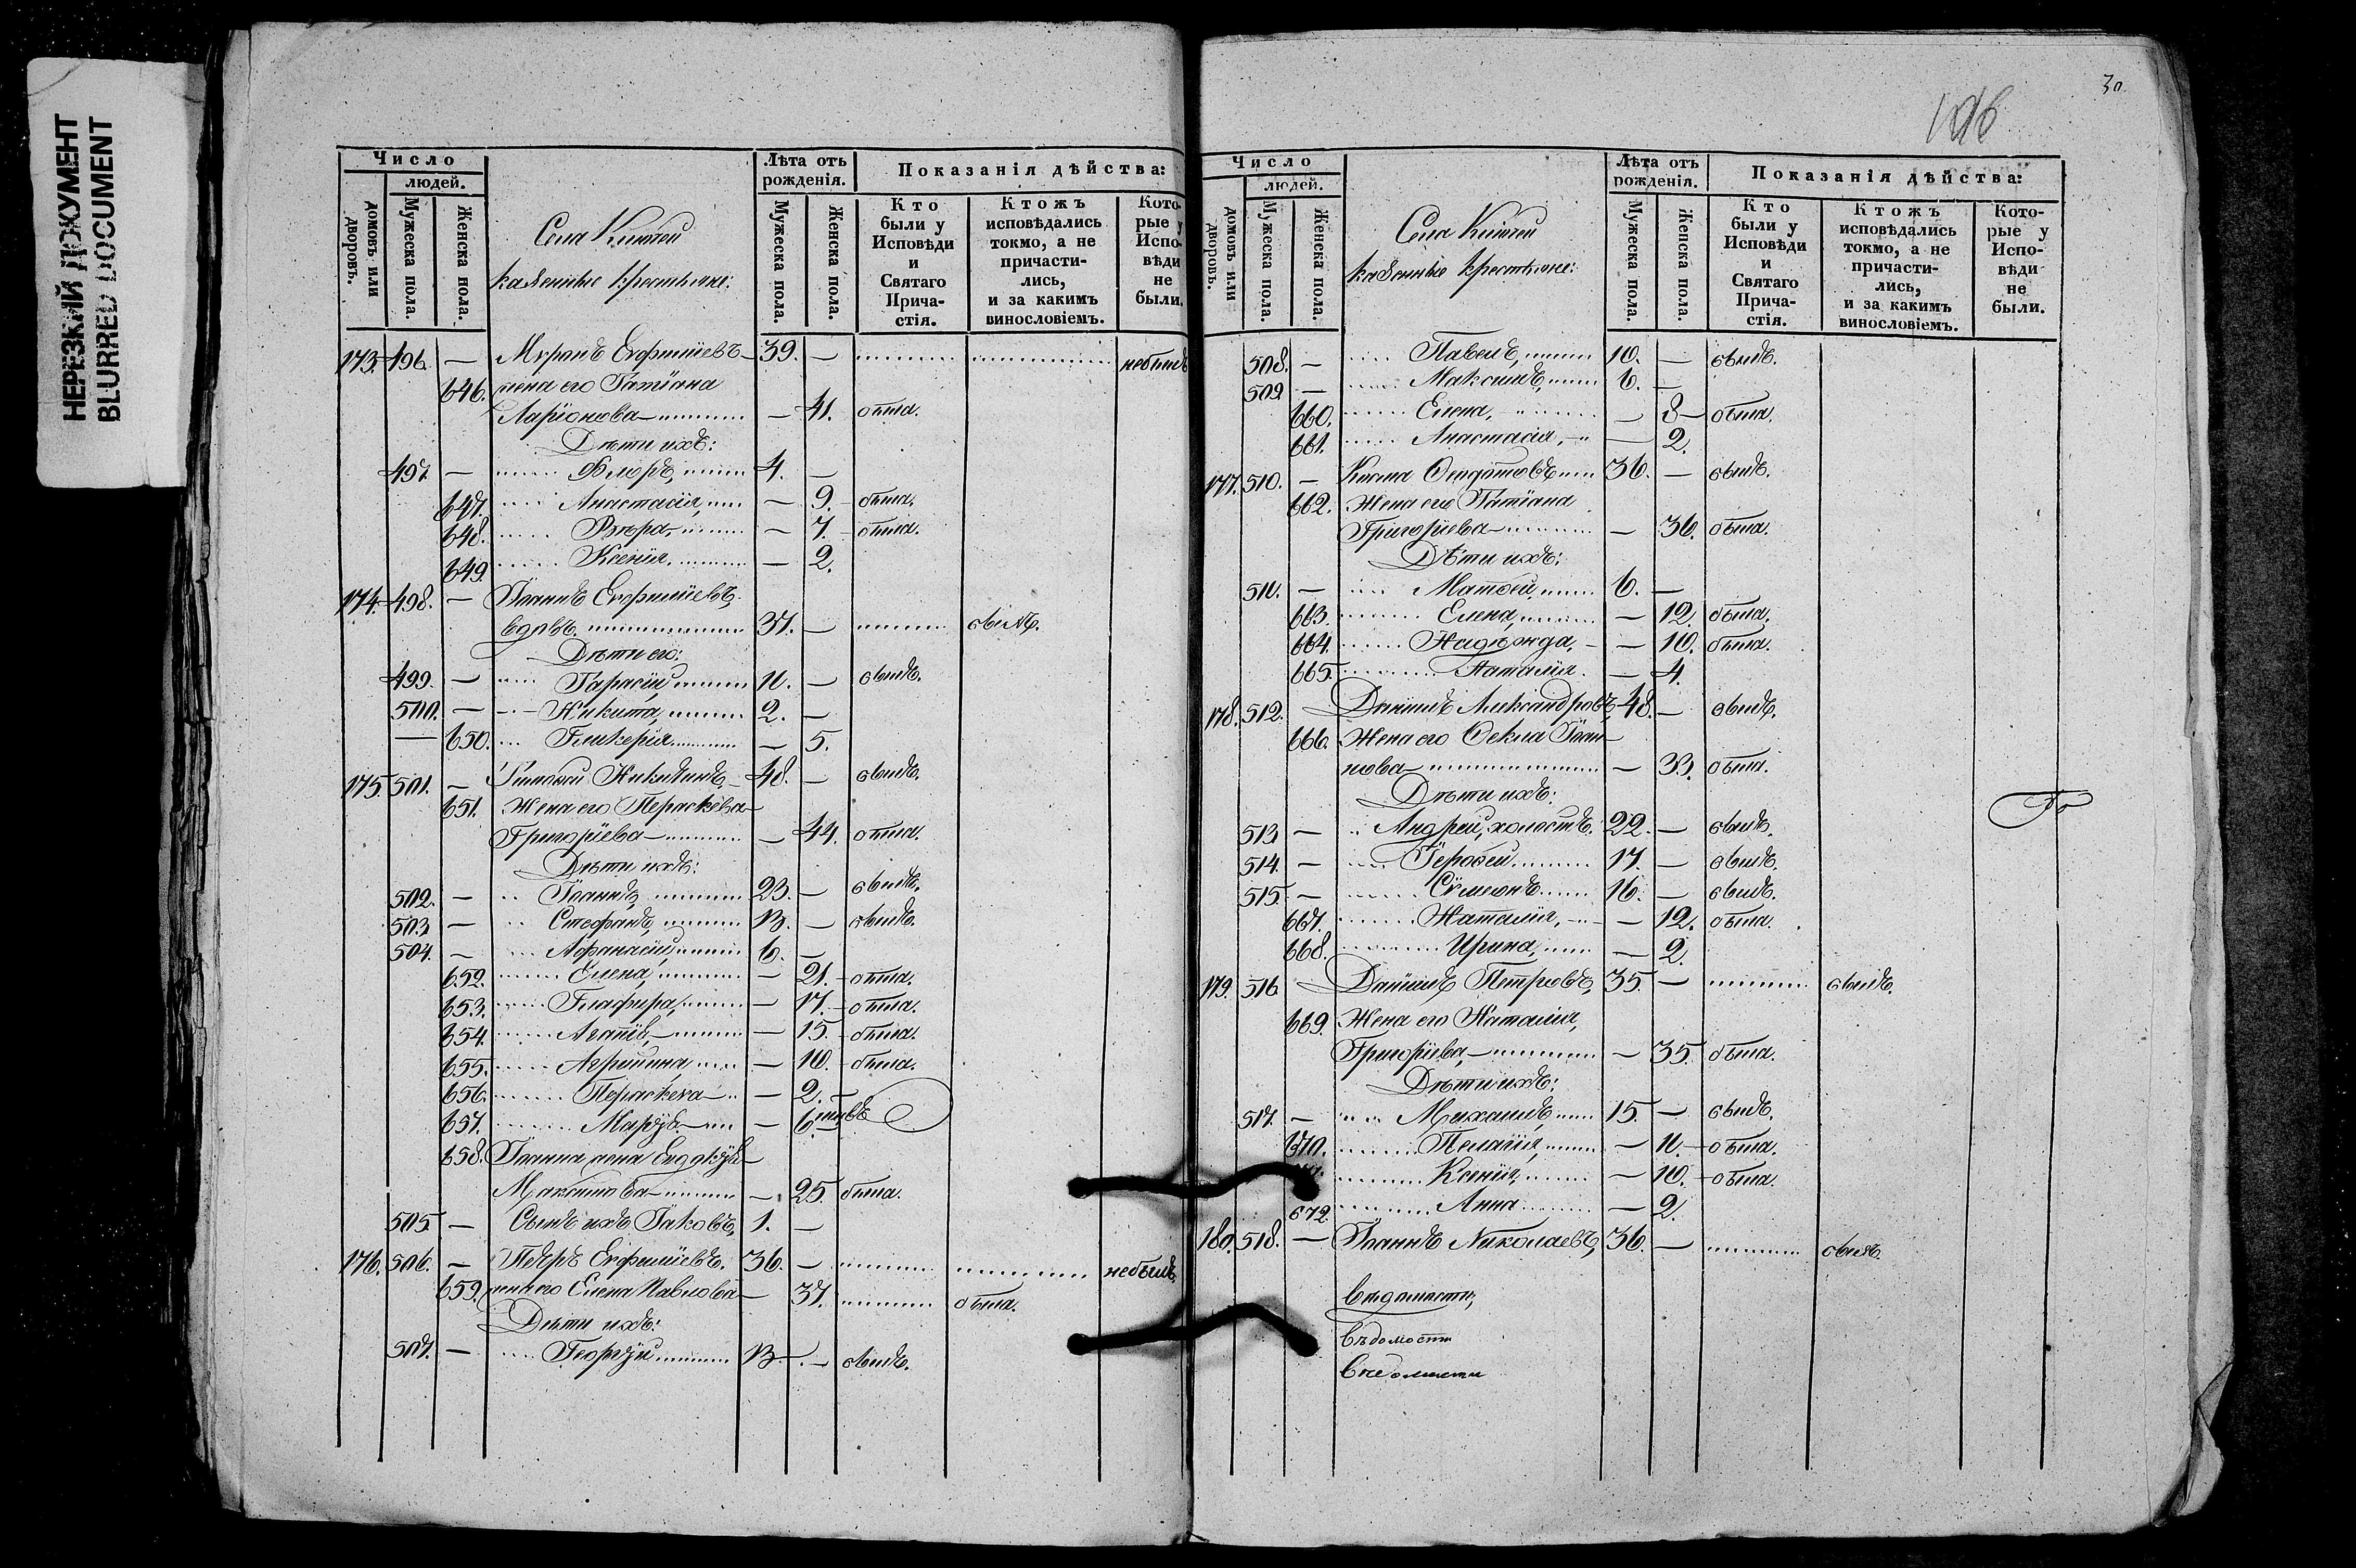 НЕРЕЗКИЙ ДОКУМЕНТ
BLURRED DOCUMENT
Число
людей.
домовъ или дворовъ.
Мужеска пола.
Женска пола.
Села
казенные крестьяне:
Лѣта отъ рожденія.
Мужеска пола.
Женска пола.
Показанія дѣйства:
Кто были у Исповѣди и Святаго Прича-стія.
Ктожъ исповѣдались токмо, а не причасти-лись, и за какимъ винословіемъ.
Кото-рые у Испо-вѣди не были.
173. 496. — Миронъ Евфиміевъ 39. — небылъ
646. жена его Татіана
Ларіонова — 41. была.
Дѣти ихъ:
497. — Флоръ, 4. —
647. Анастасія, — 9. была.
648. Вѣра, — 7. была.
649. Ксенія. — 2.
174. 498. — Іоаннъ Евфиміевъ,
вдовъ. 37. — былъ.
Дѣти его:
499. — Тарасій 11. — былъ.
500. — Никита, 2. —
650. Гликерія — 5.
175. 501. — Тимофей Никитинъ, 48. — былъ.
651. Жена его Параскева
Григоріева — 44. была.
Дѣти ихъ:
502. — Іоаннъ, 23. — былъ.
503 — Стефанъ, 13. — былъ.
504. — Афанасій 6. —
652. Елена, — 21. была.
653. Глафира, — 17. была.
654. — 15. была.
655. Агрипина, — 10. была.
656. Параскева — 2. —
657. Марѳа — 6.
658. Іоанна жена Евдокія
Максимова — 25. была.
505 — Сынъ ихъ Іаковъ, 1. —
176. 506. — Петръ Евфиміевъ. 36. — небылъ,
659. жена его Елена Павлова — 37. была.
Дѣти ихъ:
507. — Георгій 13. — былъ.
30
Число
людей.
домовъ или дворовъ.
Мужеска пола.
Женска пола.
Села
казенные крестьяне:
Лѣта отъ рожденія.
Мужеска пола.
Женска пола.
Показанія дѣйства:
Кто были у Исповѣди и Святаго Прича-стія.
Ктожъ исповѣдались токмо, а не причасти-лись, и за какимъ винословіемъ.
Кото-рые у Испо-вѣди не были.
508. — Павелъ, 10. — былъ.
509 — Максимъ, 6. —
660. Елена, — 8 — была.
661. Анастасія, — 2.
177. 510. — Косма 36. — былъ.
662. Жена его Татіана
Григоріева — 36. была.
Дѣти ихъ:
511. — Матвей, 6. —
663. Елена, — 12. была.
664. Надежда, — 10. была.
665. Наталія. — 4.
178. 512. Даніилъ Александровъ, 48. — былъ.
666. Жена его Ѳекла Іоан-
нова — 33. была.
Дѣти ихъ:
513 — Андрей, холостъ. 22. — былъ.
514. — Іерофей. 17. — былъ.
515. — Сѵмеонъ 16. — былъ.
667. Наталія, — 12. была.
668. Ирина, — 2.
179. 516 Даніилъ Петровъ, 35. — былъ.
669. Жена его Наталія,
Григоріева, — 35. была.
Дѣти ихъ:
517. — Михаилъ, 15. — былъ.
670. Пелагія, — 11. была.
Ксенія, — 10. была.
672. Анна — 2.
180. 518. — Іоаннъ Николаевъ, 36. — былъ.
вѣдомости,
вѣдомости
вѣдомости